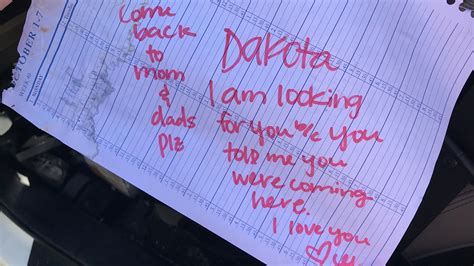 OCTOBER 1-7
Come
back
to
mom
&
dads
plz
Dakota
I am looking
for you b/c you
told me you
were coming
here.
I love you